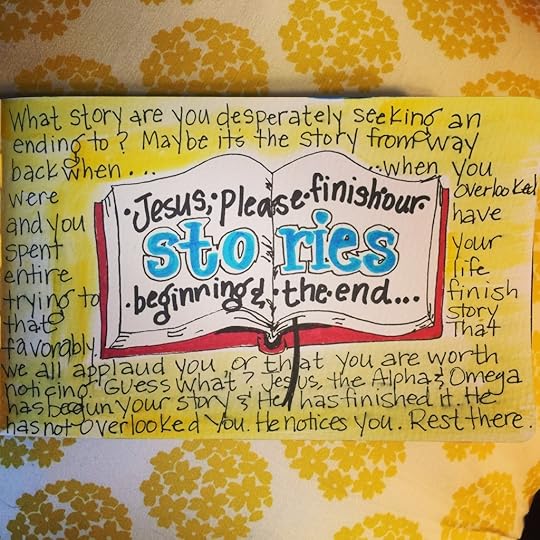 What story are you desperately seeking an
ending to? Maybe it's the story from way
back when... ...when you
were overlooked
and you have
spent your
entire life
trying to finish
that story
favorably. That
we all applaud you, or that you are worth
noticing. Guess what? Jesus, the Alpha & Omega
has begun your story & He has finished it. He
has not overlooked you. He notices you. Rest there.
·Jesus, please finish our·
stories
·beginning & the end....